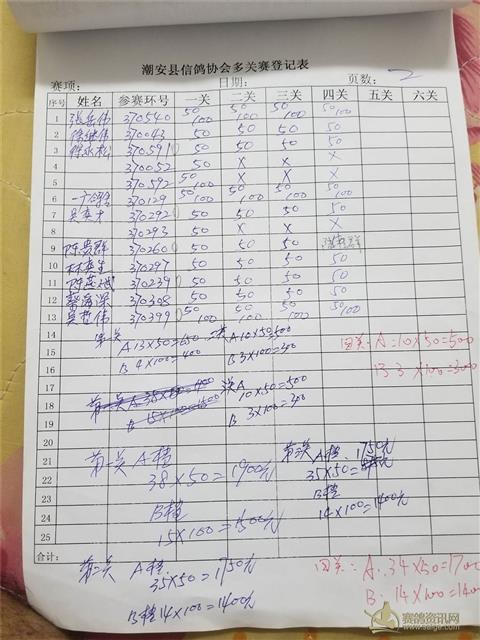 潮安县信鸽协会多关赛登记表
赛项: 日期: 页数: 2
序号 姓名 参赛环号 一关 二关 三关 四关 五关 六关
1 张岳伟 370540 50 100 50 100 50 100 50 100
2 徐继伟 370043 50 50 50 50
3 徐永松 370591 50 50 50 50
4 370052 50 X X X
5 370592 50 X X X
6 370129 50 100 50 100 50 100 50 100
7 370292 50 50 50 50
8 370293 50 X X X
9 陈贵群 370260 50 50 50
10 林春生 370297 50 50 50 50
11 370239 50 50 50 50
12 370308 50 50 50 50
13 370399 50 100 50 100 50 100 50 100
14 第一关
15 A 13×50=650 二关 A 10×50=500
16 B 4×100=400 B 3×100=300
四关: A=10×50=500
B 3×100=300
17
18 第一关 A 35×50= B 15×100=
A 10×50=500
19 B 3×100=300
20
21 第一关 A档
22 38×50=1900元
23 B档
24 15×100=1500元
25
第三关 A档. 1750元
35×50=
B档
14×100=1400元
合计:
第二关 A档.
35×50=1750元
B档 14×100=1400元
四关: A. 34×50=1700
B. 14×100=1400
赛鸽资讯网
www.saige.com